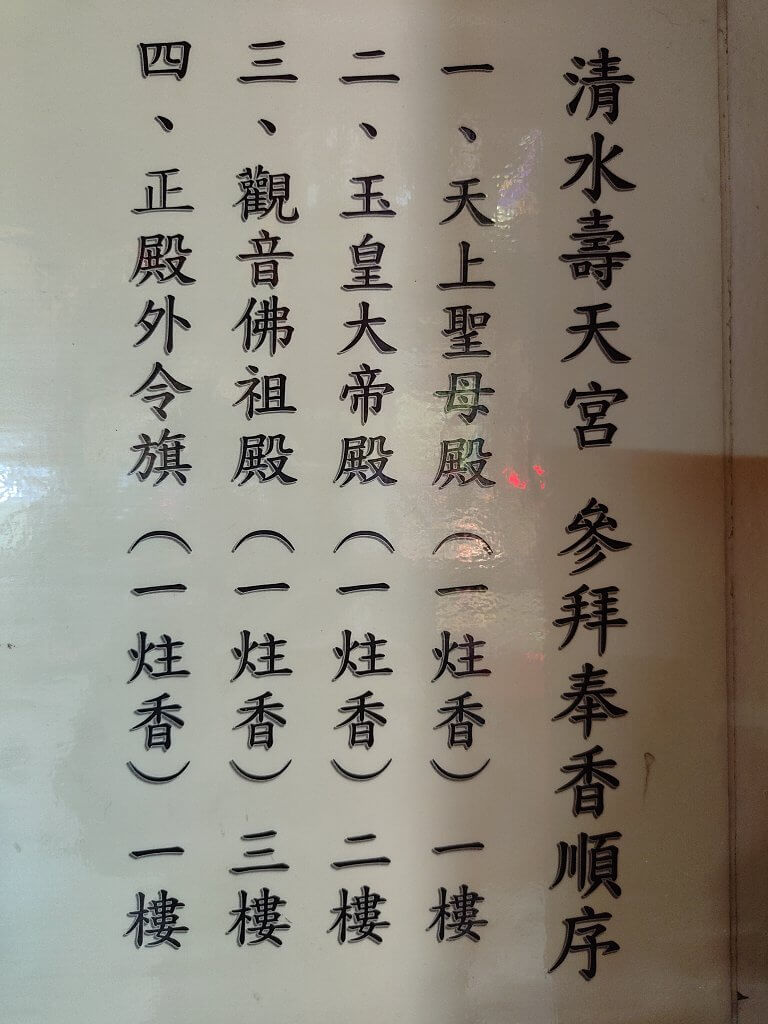 清水壽天宮 參拜奉香順序
一、天上聖母殿（一炷香）一樓
二、玉皇大帝殿（一炷香）二樓
三、觀音佛祖殿（一炷香）三樓
四、正殿外令旗（一炷香）一樓